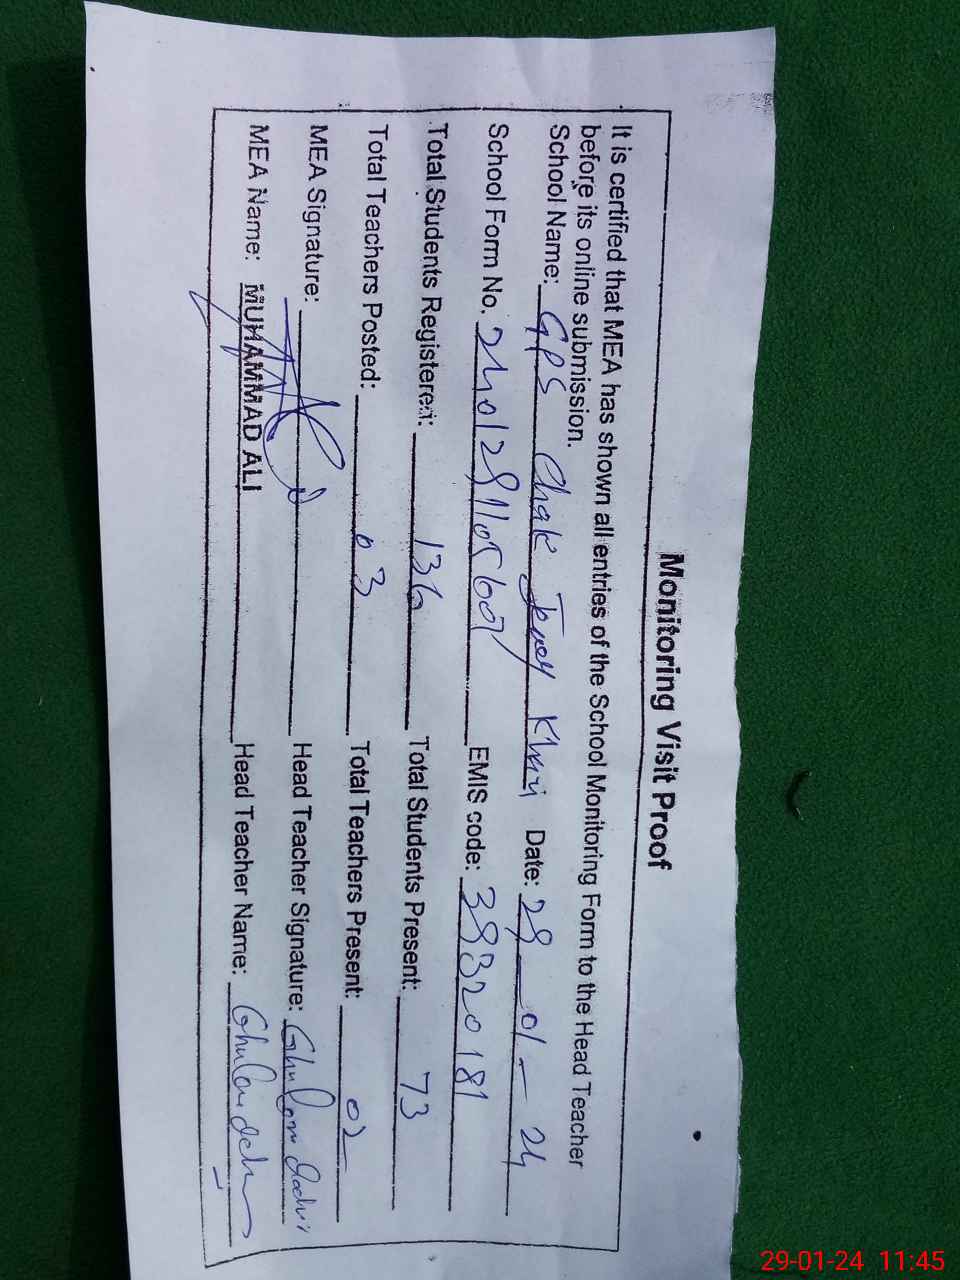 Monitoring Visit Proof
It is certified that MEA has shown all entries of the School Monitoring Form to the Head Teacher
before its online submission.
School Name: GPS Chak Khizri Date: 29-01-24
School Form No. EMIS code: 38320181
Total Students Registered: 136 Total Students Present: 73
Total Teachers Posted: 03 Total Teachers Present: 02
MEA Signature: Head Teacher Signature:
MEA Name: MUHAMMAD ALI Head Teacher Name:
29-01-24 11:45